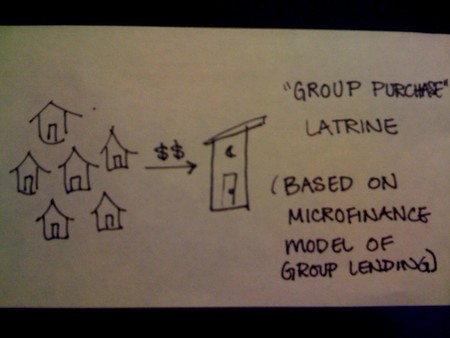 "GROUP PURCHASE"
LATRINE
$$
(BASED ON
MICROFINANCE
MODEL OF
GROUP LENDING)